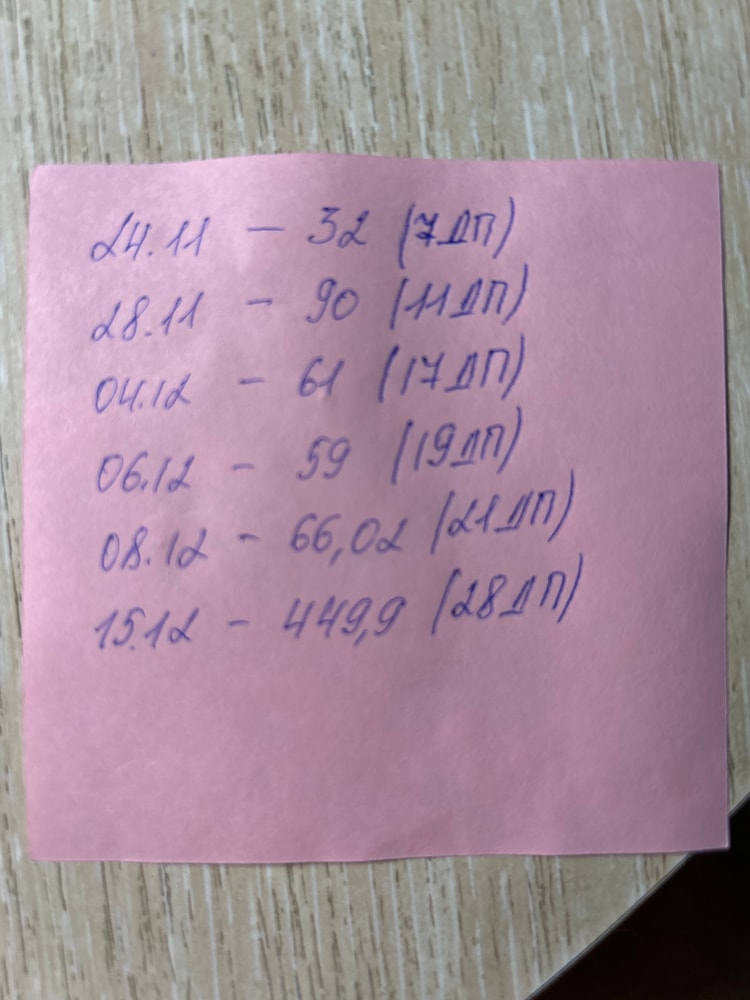 24.11 — 32 (7ДП)
28.11 — 90 (11ДП)
04.12 — 61 (17ДП)
06.12 — 59 (19ДП)
08.12 — 66,02 (21ДП)
15.12 — 449,9 (28ДП)